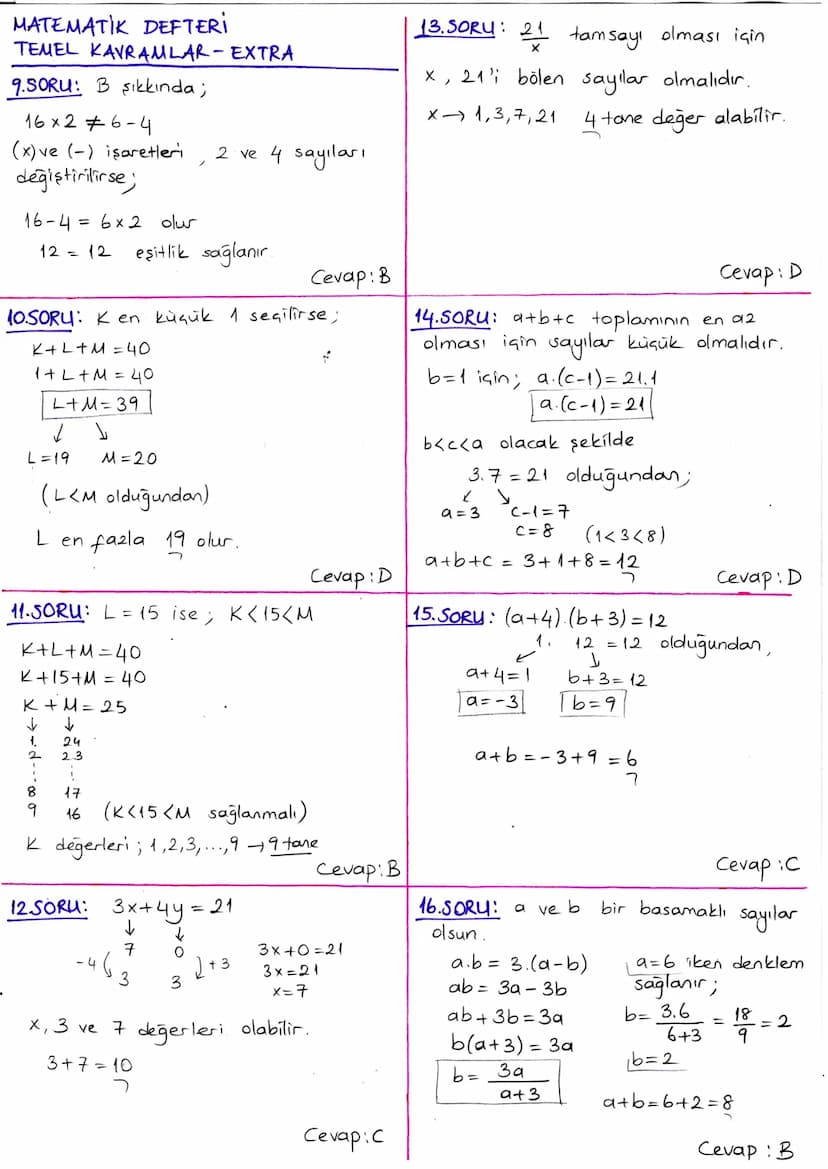 MATEMATİK DEFTERİ
TEMEL KAVRAMLAR - EXTRA
9.SORU: B şıkkında;
16 x 2 ≠ 6 - 4
(x) ve (-) işaretleri , 2 ve 4 sayıları
değiştirilirse;
16 - 4 = 6 x 2 olur
12 = 12 eşitlik sağlanır
Cevap: B
10.SORU: K en küçük 1 seçilirse;
K + L + M = 40
1 + L + M = 40
L + M = 39
L = 19 M = 20
(L < M olduğundan)
L en fazla 19 olur.
Cevap: D
11.SORU: L = 15 ise ; K < 15 < M
K + L + M = 40
K + 15 + M = 40
K + M = 25
↓ ↓
1 24
2 23
⋮ ⋮
8 17
9 16 (K < 15 < M sağlanmalı)
K değerleri ; 1, 2, 3, ..., 9 → 9 tane
Cevap: B
12.SORU: 3x + 4y = 21
↓ ↓
7 0 3x + 0 = 21
-4 +3 3x = 21
3 3 x = 7
x, 3 ve 7 değerleri olabilir.
3 + 7 = 10
Cevap: C
13.SORU: 21/x tamsayı olması için
x , 21'i bölen sayılar olmalıdır.
x → 1, 3, 7, 21 4 tane değer alabilir.
Cevap: D
14.SORU: a+b+c toplamının en az
olması için sayılar küçük olmalıdır.
b = 1 için; a.(c-1) = 21.1
a.(c-1) = 21
b < c < a olacak şekilde
3.7 = 21 olduğundan;
a = 3 c-1 = 7
c = 8 (1 < 3 < 8)
a + b + c = 3 + 1 + 8 = 12
Cevap: D
15.SORU: (a+4).(b+3) = 12
1. 12 = 12 olduğundan,
a + 4 = 1 b + 3 = 12
a = -3 b = 9
a + b = -3 + 9 = 6
Cevap: C
16.SORU: a ve b bir basamaklı sayılar
olsun.
a.b = 3.(a-b) a = 6 iken denklem
ab = 3a - 3b sağlanır;
ab + 3b = 3a b = 3.6/6+3 = 18/9 = 2
b(a+3) = 3a b = 2
b = 3a/a+3
a + b = 6 + 2 = 8
Cevap : B